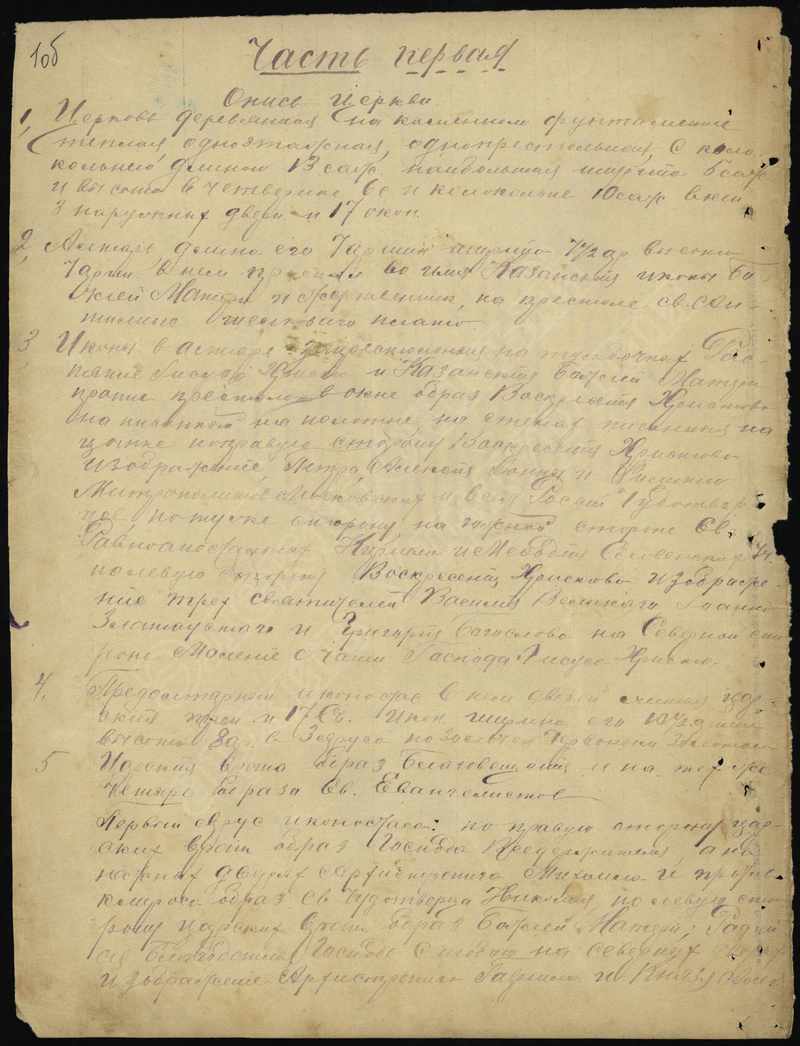 106
Часть первая
Опись церкви
1, Церковь деревянная на каменном фундаменте
теплая, одноэтажная, однопрестольная, с коло
кольней, длиною 13 саж. наибольшая ширина 5 саж
и высота в четверике 6 с и колокольне 10 саж в ней
3 наружных двери и 17 окон.
2, Алтарь длина его 7 аршин ширина 7 1/2 ар высота
7 арш в нем престол во имя Казанския иконы Бо
жией Матери и жертвенник, на престоле св. Ан-
тиминс
3, Иконы в алтаре: на Рас-
пятие Христа и Казанския Божией Матери
против престола в окне образ Воскресения Христова
написанный на полотне, на стенах писанныя на
цинке по правую сторону Воскресения Христова
изображение, Петра, Алексия Ионы и Филиппа
Митрополитов Московских и всея России Чудотвор-
цев, на южной стороне Св.
Равноапостольных Кирилла и Мефодия Словенских уч.
по левую сторону Воскресения Христова изображе-
ние трех святителей Василия Великаго Иоанна
Златоустаго и Григория Богослова на Северной сто
роне Моление о чаше Господа Иисуса Христа.
4, Предалтарный иконостас в нем дверей считая цар-
ския трои и 17 Св. Икон ширина его 10 1/2 аршин
высота 8 ар. в 3 яруса червонным золотом
5 Царския врата образ Благовещения и на тех же
Четыре образа Св. Евангелистов
Первый ярус иконостаса: по правую сторону цар-
ских врат образ Господа Вседержителя, а на
южных дверях архистратига Михаила и
образ св Чудотворца Николая, по левую сто
рону царских врат образ Божией Матери; Радуй
ся Благодатная, Господь с тобою на северных дверях
изображение Архистратига Гавриила и Князя